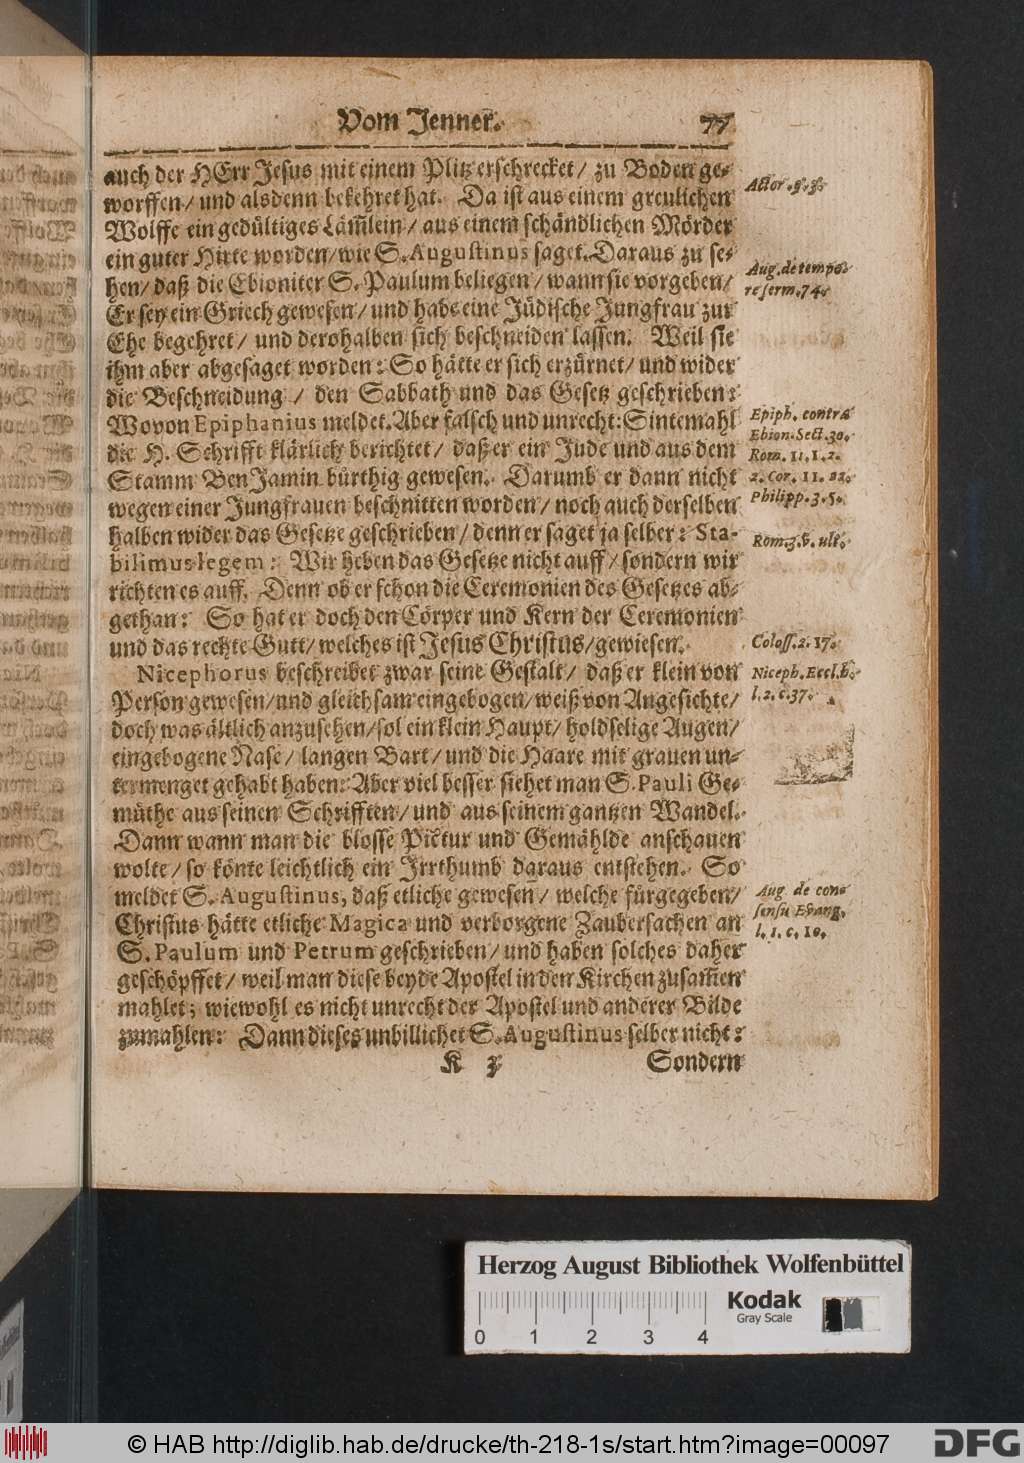 Vom Jenner. 77
auch der HErr Jesus mit einem Plitz erschrecket / zu Boden ge-
worffen / und alsdenn bekehret hat. Da ist aus einem greulichen
Wolffe ein gedültiges Läm̃lein / aus einem schändlichen Mörder
ein guter Hirte worden / wie S. Augustinus saget. Daraus zu se-
hen / daß die Ebioniter S. Paulum beliegen / wann sie vorgeben /
Er sey ein Griech gewesen / und habe eine Jüdische Jungfrau zur
Ehe begehret / und derohalben sich beschneiden lassen. Weil sie
ihm aber abgesaget worden: So hätte er sich erzürnet / und wider
die Beschneidung / den Sabbath und das Gesetz geschrieben:
Wovon Epiphanius meldet. Aber falsch und unrecht: Sintemahl
die H. Schrifft klärlich berichtet / daß er ein Jude und aus dem
Stamm BenJamin bürthig gewesen. Darumb er dann nicht
wegen einer Jungfrauen beschnitten worden / noch auch derselben
halben wider das Gesetze geschrieben / denn er saget ja selber: Sta-
bilimus legem: Wir heben das Gesetze nicht auff / sondern wir
richten es auff. Denn ob er schon die Ceremonien des Gesetzes ab-
gethan: So hat er doch den Cörper und Kern der Ceremonien
und das rechte Gutt / welches ist Jesus Christus / gewiesen.
Nicephorus beschreibet zwar seine Gestalt / daß er klein von
Person gewesen / und gleichsam eingebogen / weiß von Angesichte /
doch was ältlich anzusehen / sol ein klein Haupt / holdselige Augen /
eingebogene Nase / langen Bart / und die Haare mit grauen un-
termenget gehabt haben: Aber viel besser siehet man S. Pauli Ge-
müthe aus seinen Schrifften / und aus seinem gantzen Wandel.
Dann wann man die blosse Pictur und Gemählde anschauen
wolte / so könte leichtlich ein Irrthumb daraus entstehen. So
meldet S. Augustinus, daß etliche gewesen / welche fürgegeben /
Christus hätte etliche Magica und verborgene Zaubersachen an
S. Paulum und Petrum geschrieben / und haben solches daher
geschöpffet / weil man diese beyde Apostel in den Kirchen zusam̃en
mahlet; wiewohl es nicht unrecht der Apostel und anderer Bilde
zumahlen: Dann dieses unbillichet S. Augustinus selber nicht:
K 3 Sondern
Actor. 9. 3.
Aug. de tempo-
re serm. 74.
Epiph. contra
Ebion. Sect. 30.
Rom. 11, 1. 2.
2. Cor. 11. 22.
Philipp. 3. 5.
Rom. 3. v. ult.
Coloss. 2. 17.
Niceph. Eccl. h.
l. 2. c. 37.
Aug de con-
sensu Evang.
l. 1. c. 10.
Herzog August Bibliothek Wolfenbüttel
Kodak
Gray Scale
0 1 2 3 4
© HAB http://diglib.hab.de/drucke/th-218-1s/start.htm?image=00097
DFG